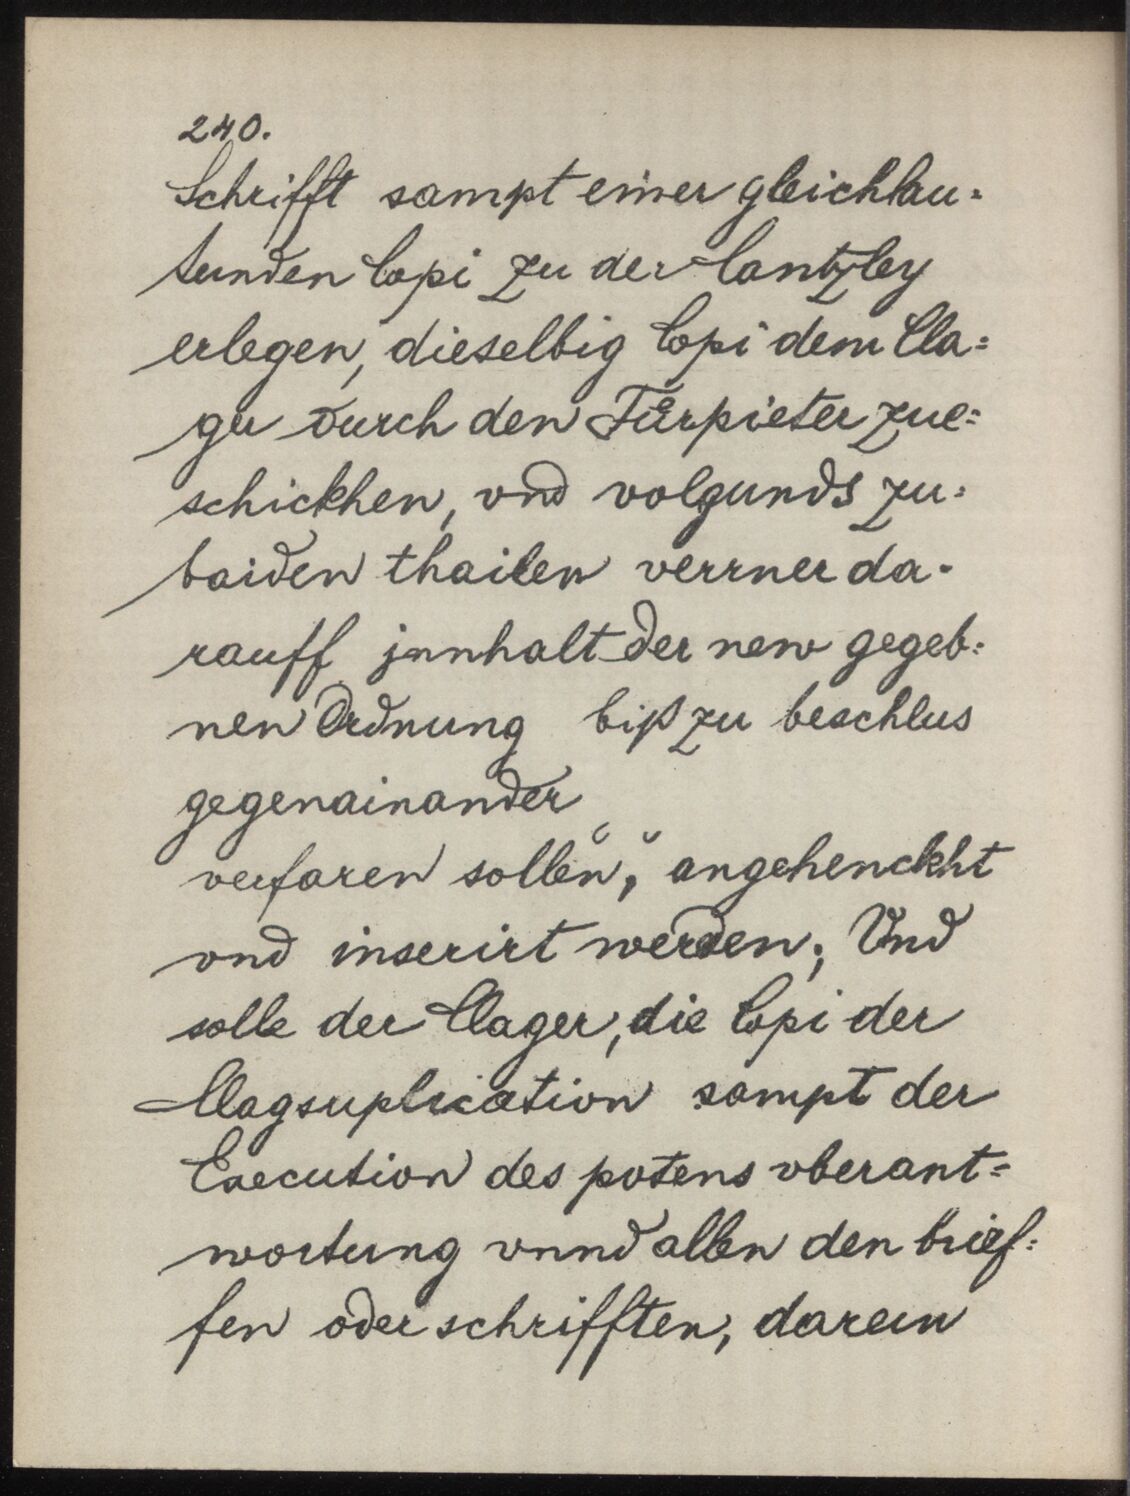 240.
Schrifft sampt einer gleichlau-
tunden Copi zu der Cantzley
erlegen, dieselbig Copi dem Cla=
ger durch den Fürpieter zue=
schickhen, vnd volgunds zu-
baiden thailen verrner da-
rauff jnnhalt der new gegeb-
nen Ordnung biß zu beschlus
gegenainander
verfaren sollen", angehenckht
vnd inserirt werden; Vnd
solle der Clager, die Copi der
Clagsuplication sampt der
Execution des potens vberant=
wortung vnnd allen den brief-
fen oder schrifften, darein